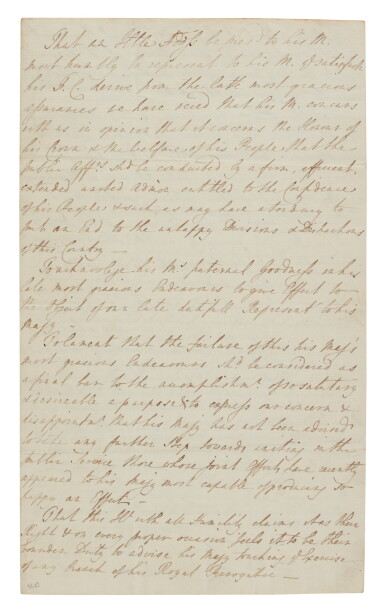 That an Hble Addss. be presd to his M.
most humbly to represent to his M. the satisfact
his F. C. derive from the late most gracious
assurances we have recd that his M. concurs
with us in opinion that it concerns the Honor of
his Crown & the Welfare of his People, that the
public Affrs. shd be conducted by a firm, efficient,
extended united Admn entitled to the Confidence
of his People & such as may have a tendency to
put an End to the unhappy Divisions & Distractions
of this Country —
To acknowlege his M's paternal Goodness in his
late most gracious Endeavours to give Effect to
the Object of our late dutifull Represent to his
Majy —
To lament that the failure of this his Majs
most gracious Endeavours shd be considered as
a final bar to the accomplishmt. of so salutary
& desireable a purpose & to express our concern &
disappointmt. that his Majy has not been advised
to take any further Step towards uniting in the
Public Service those whose joint Efforts have recently
appeared to his Majy most capable of producing so
happy an Effect —
That this He with all Humility claims it as their
Right & on every proper occasion feels it to be their
bounden Duty to advise his Majy touching the Exercise
of any Branch of his Royal Prerogative —